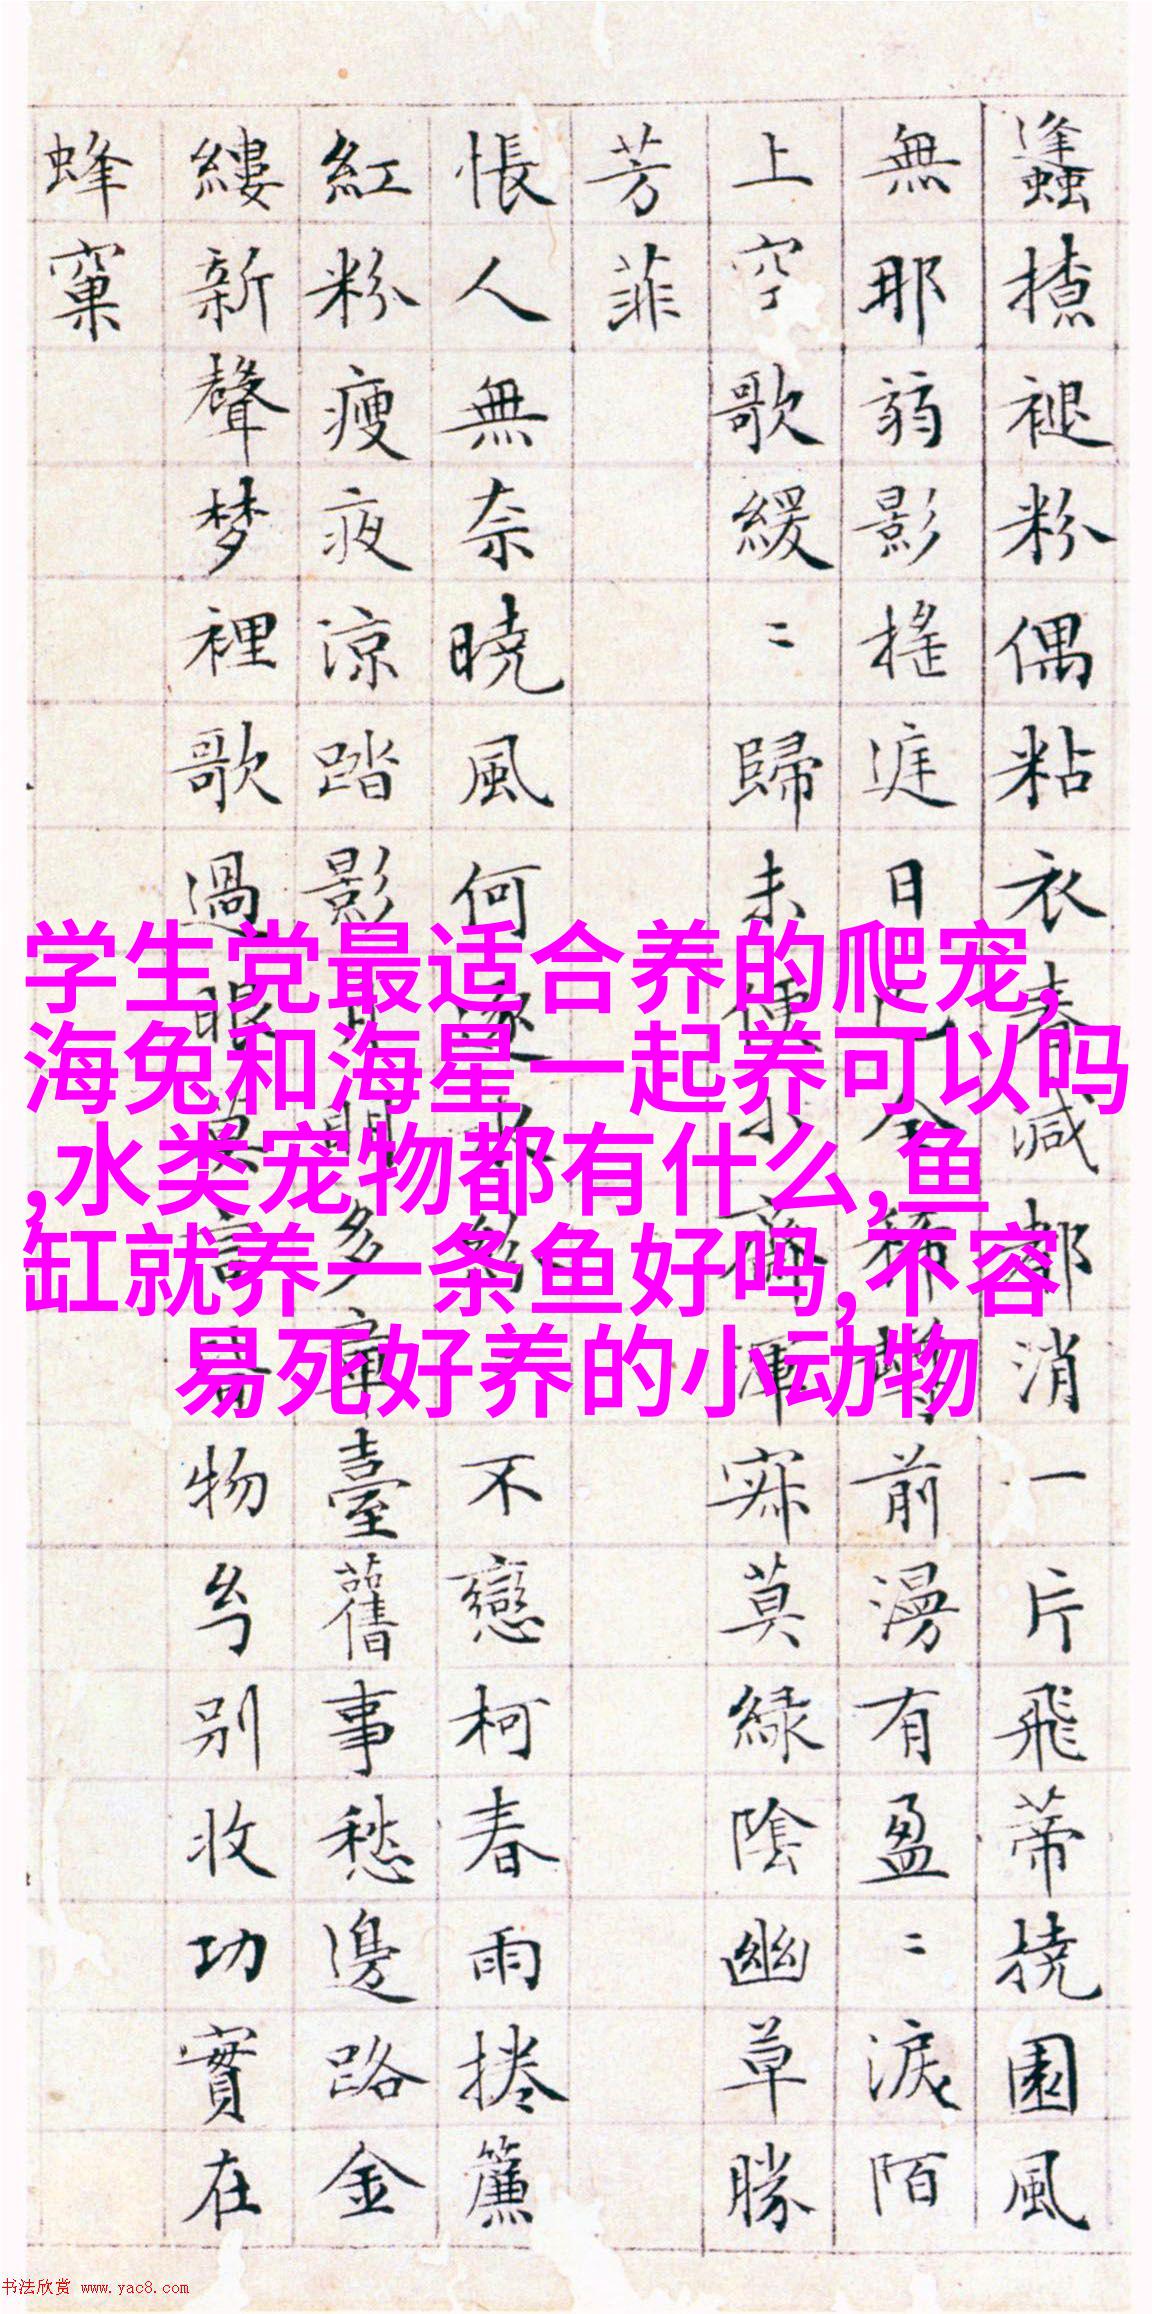 蠭褪粉偶粘衣春減都消一片飛蒂撓園風
無那弱影搖日全稀前漫有盈〻淚陌
上空歌緩〻歸未渾寂莫綠陰幽草勝
芳菲
悵人無奈曉風何逐水不戀柯春雨捲簾
紅粉瘦夜涼踏影月多臺舊事愁邊路金
縷新聲梦裡歌過眼莫言物兮别收功實在
蜂窠
学生党最适合养的爬宠,
海兔和海星一起养可以吗
,水类宠物都有什么,鱼
缸就养一条鱼好吗,不容
易死好养的小动物
书法欣赏 www.yac8.com